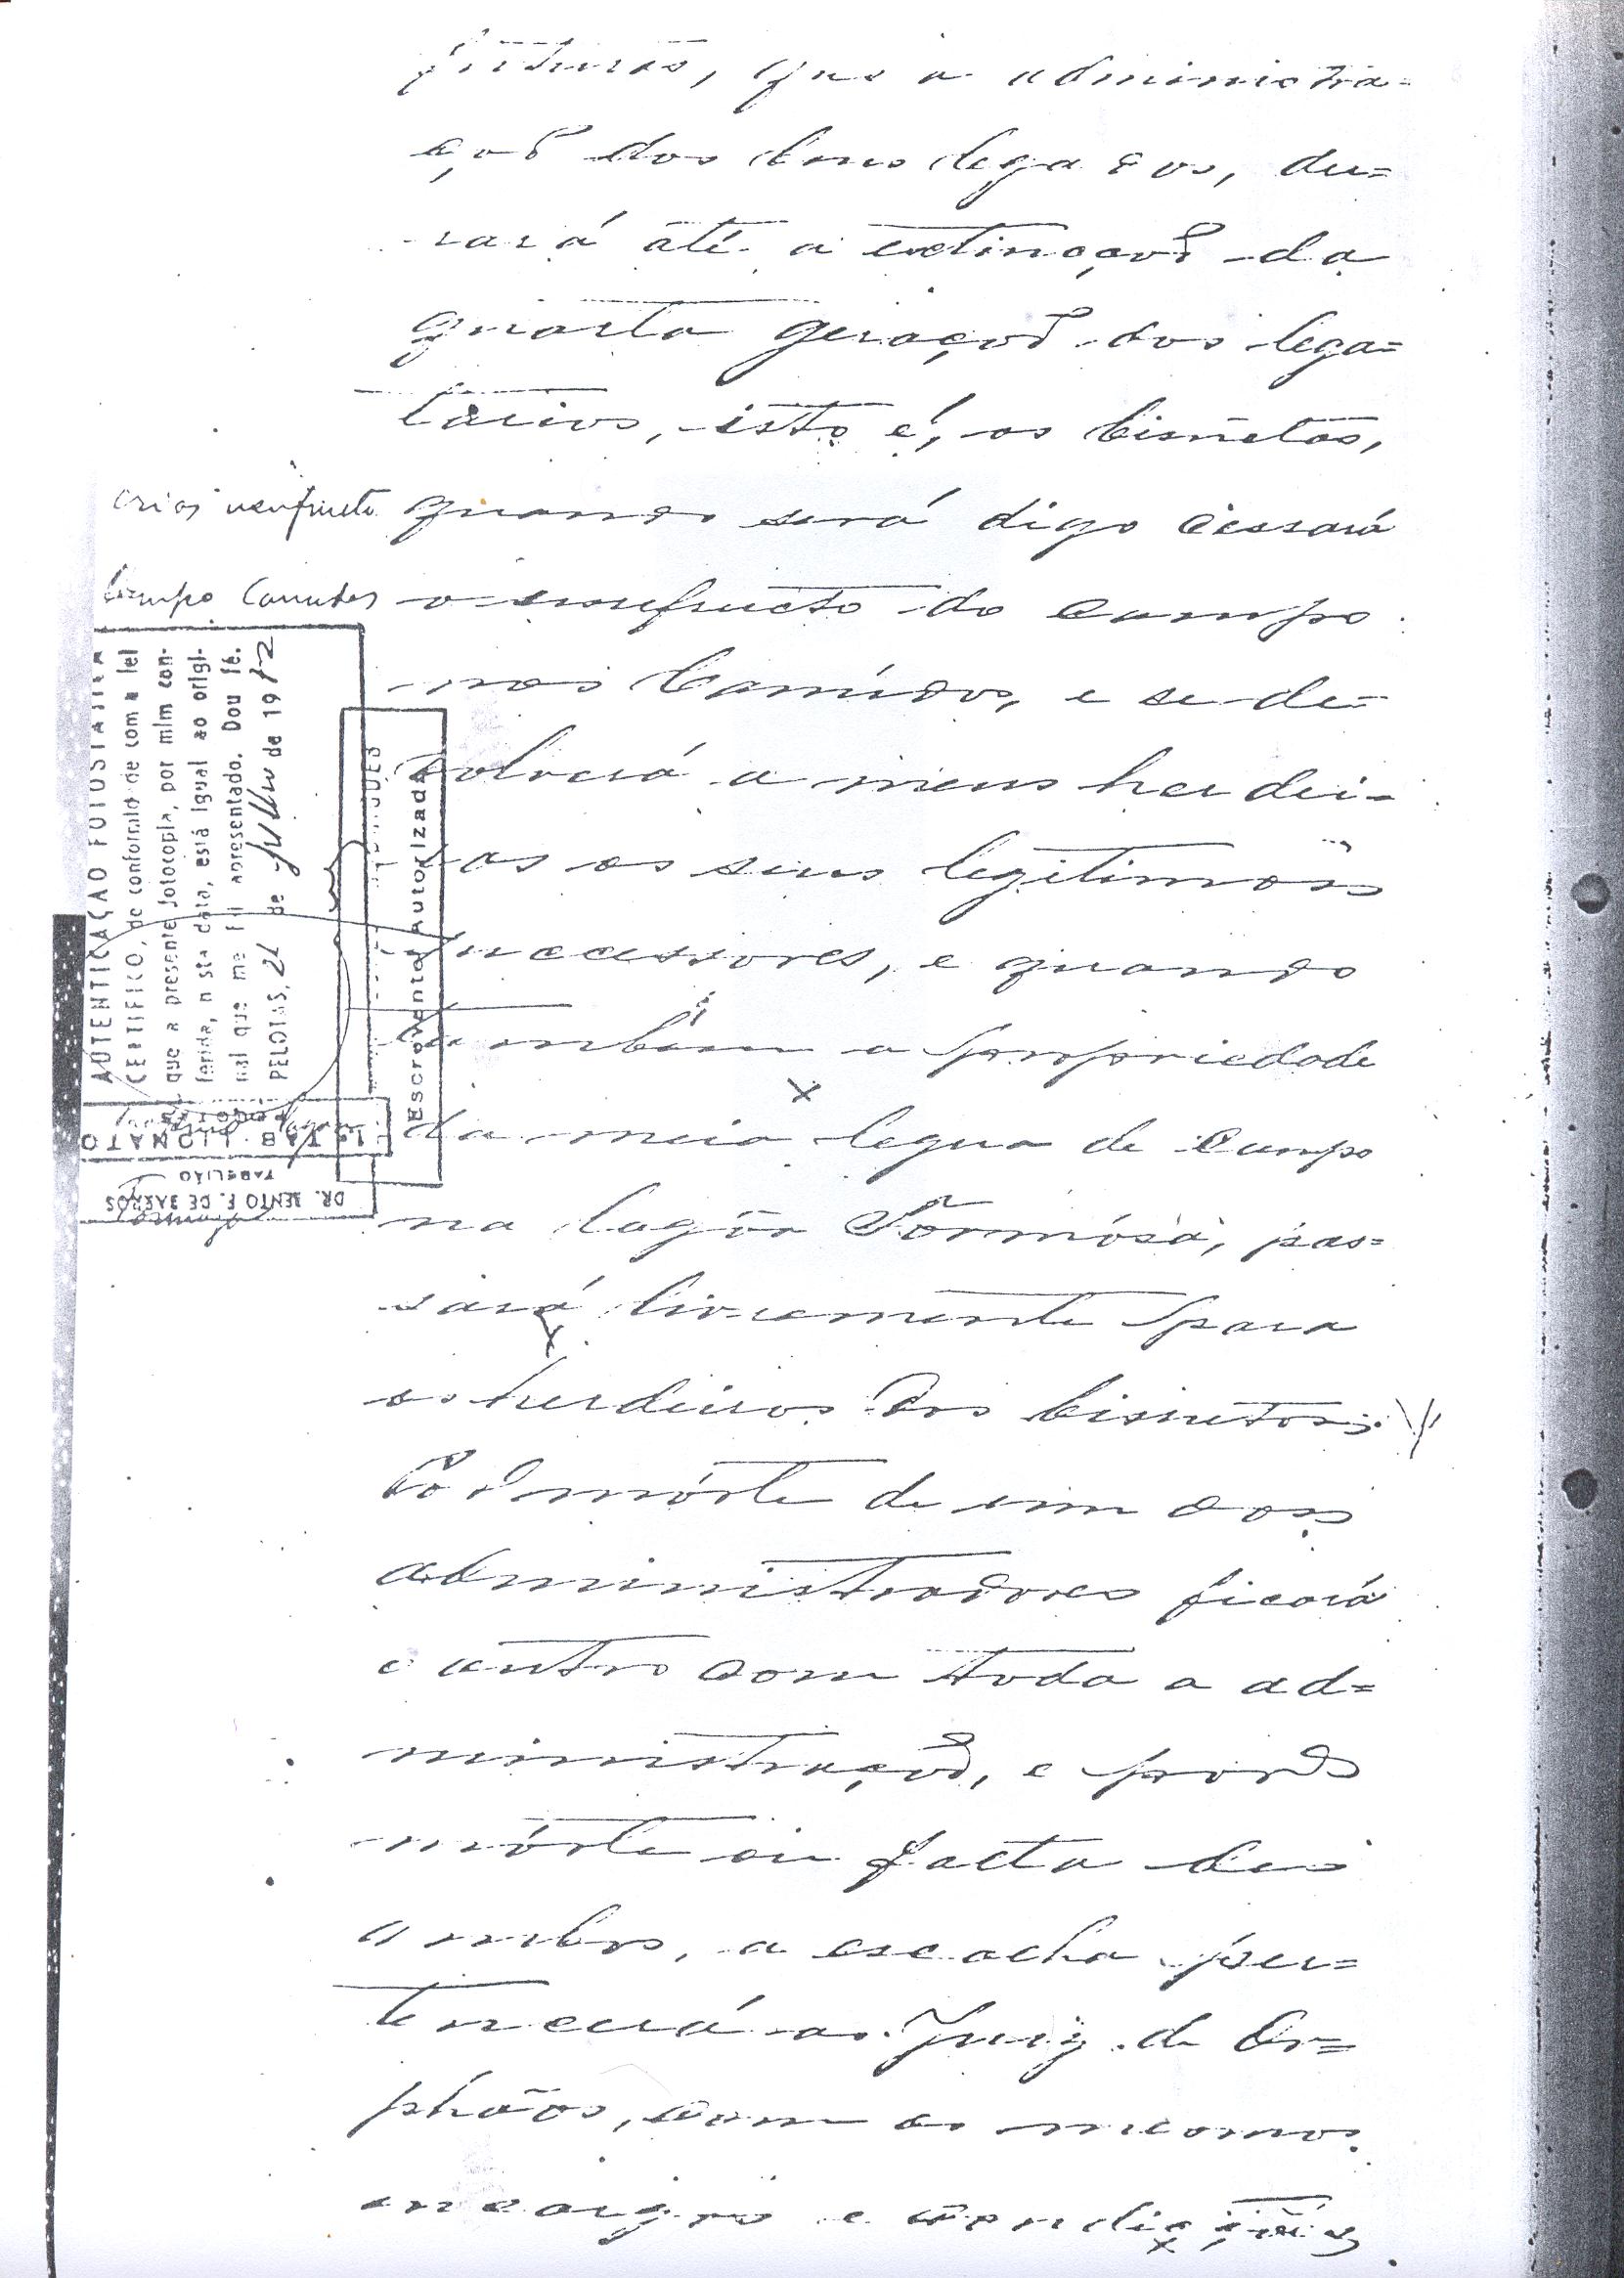 futuros, que a administra-
ção dos bens legados, du=
rará até a extincção da
quarta geração dos lega=
tarios, isto é, os bisnetos,
quando será digo cessará
o usufructo do campo
nos Canudos, e se de=
volverá a meus herdei-
ros os seus legitimos
successores, e quando
tambem a propriedade
da meia legua de campo
na lagôa Formósa, pas=
sará livremente para
os herdeiros dos bisnetos.
Por mórte de um dos
administradores ficará
o outro com toda a ad=
ministração, e por
mórte ou facta de
ambos, a escolha per=
tencerá ao Juiz de Or=
phãos, com os mesmos
encargos e condições
usufructo
Campo Canudos
AUTENTICAÇÃO FOTOSTATICA
CERTIFICO, de conformidade com a lei
que a presente fotocopia, por mim con-
ferida, nesta data, está igual ao origi-
nal que me foi apresentado. Dou fé.
PELOTAS, 26 de Julho de 1972
Escrevente Autorizada
1º TABELIONATO
PELOTAS
DR. BENTO F. DE BARROS
TABELIÃO